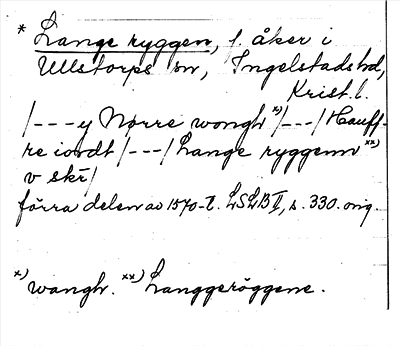 * Lange ryggen, f. åker i
Ullstorps sn, Ingelstads hd,
Krist. l.
/---y Nørre wongh x)/---/ Hauff-
re iordt /---/ Lange ryggenn xx)
v skr/
förra delen av 1570-t. LSLB II, s. 330. orig.
x) wangh. xx) Langgerøggene.